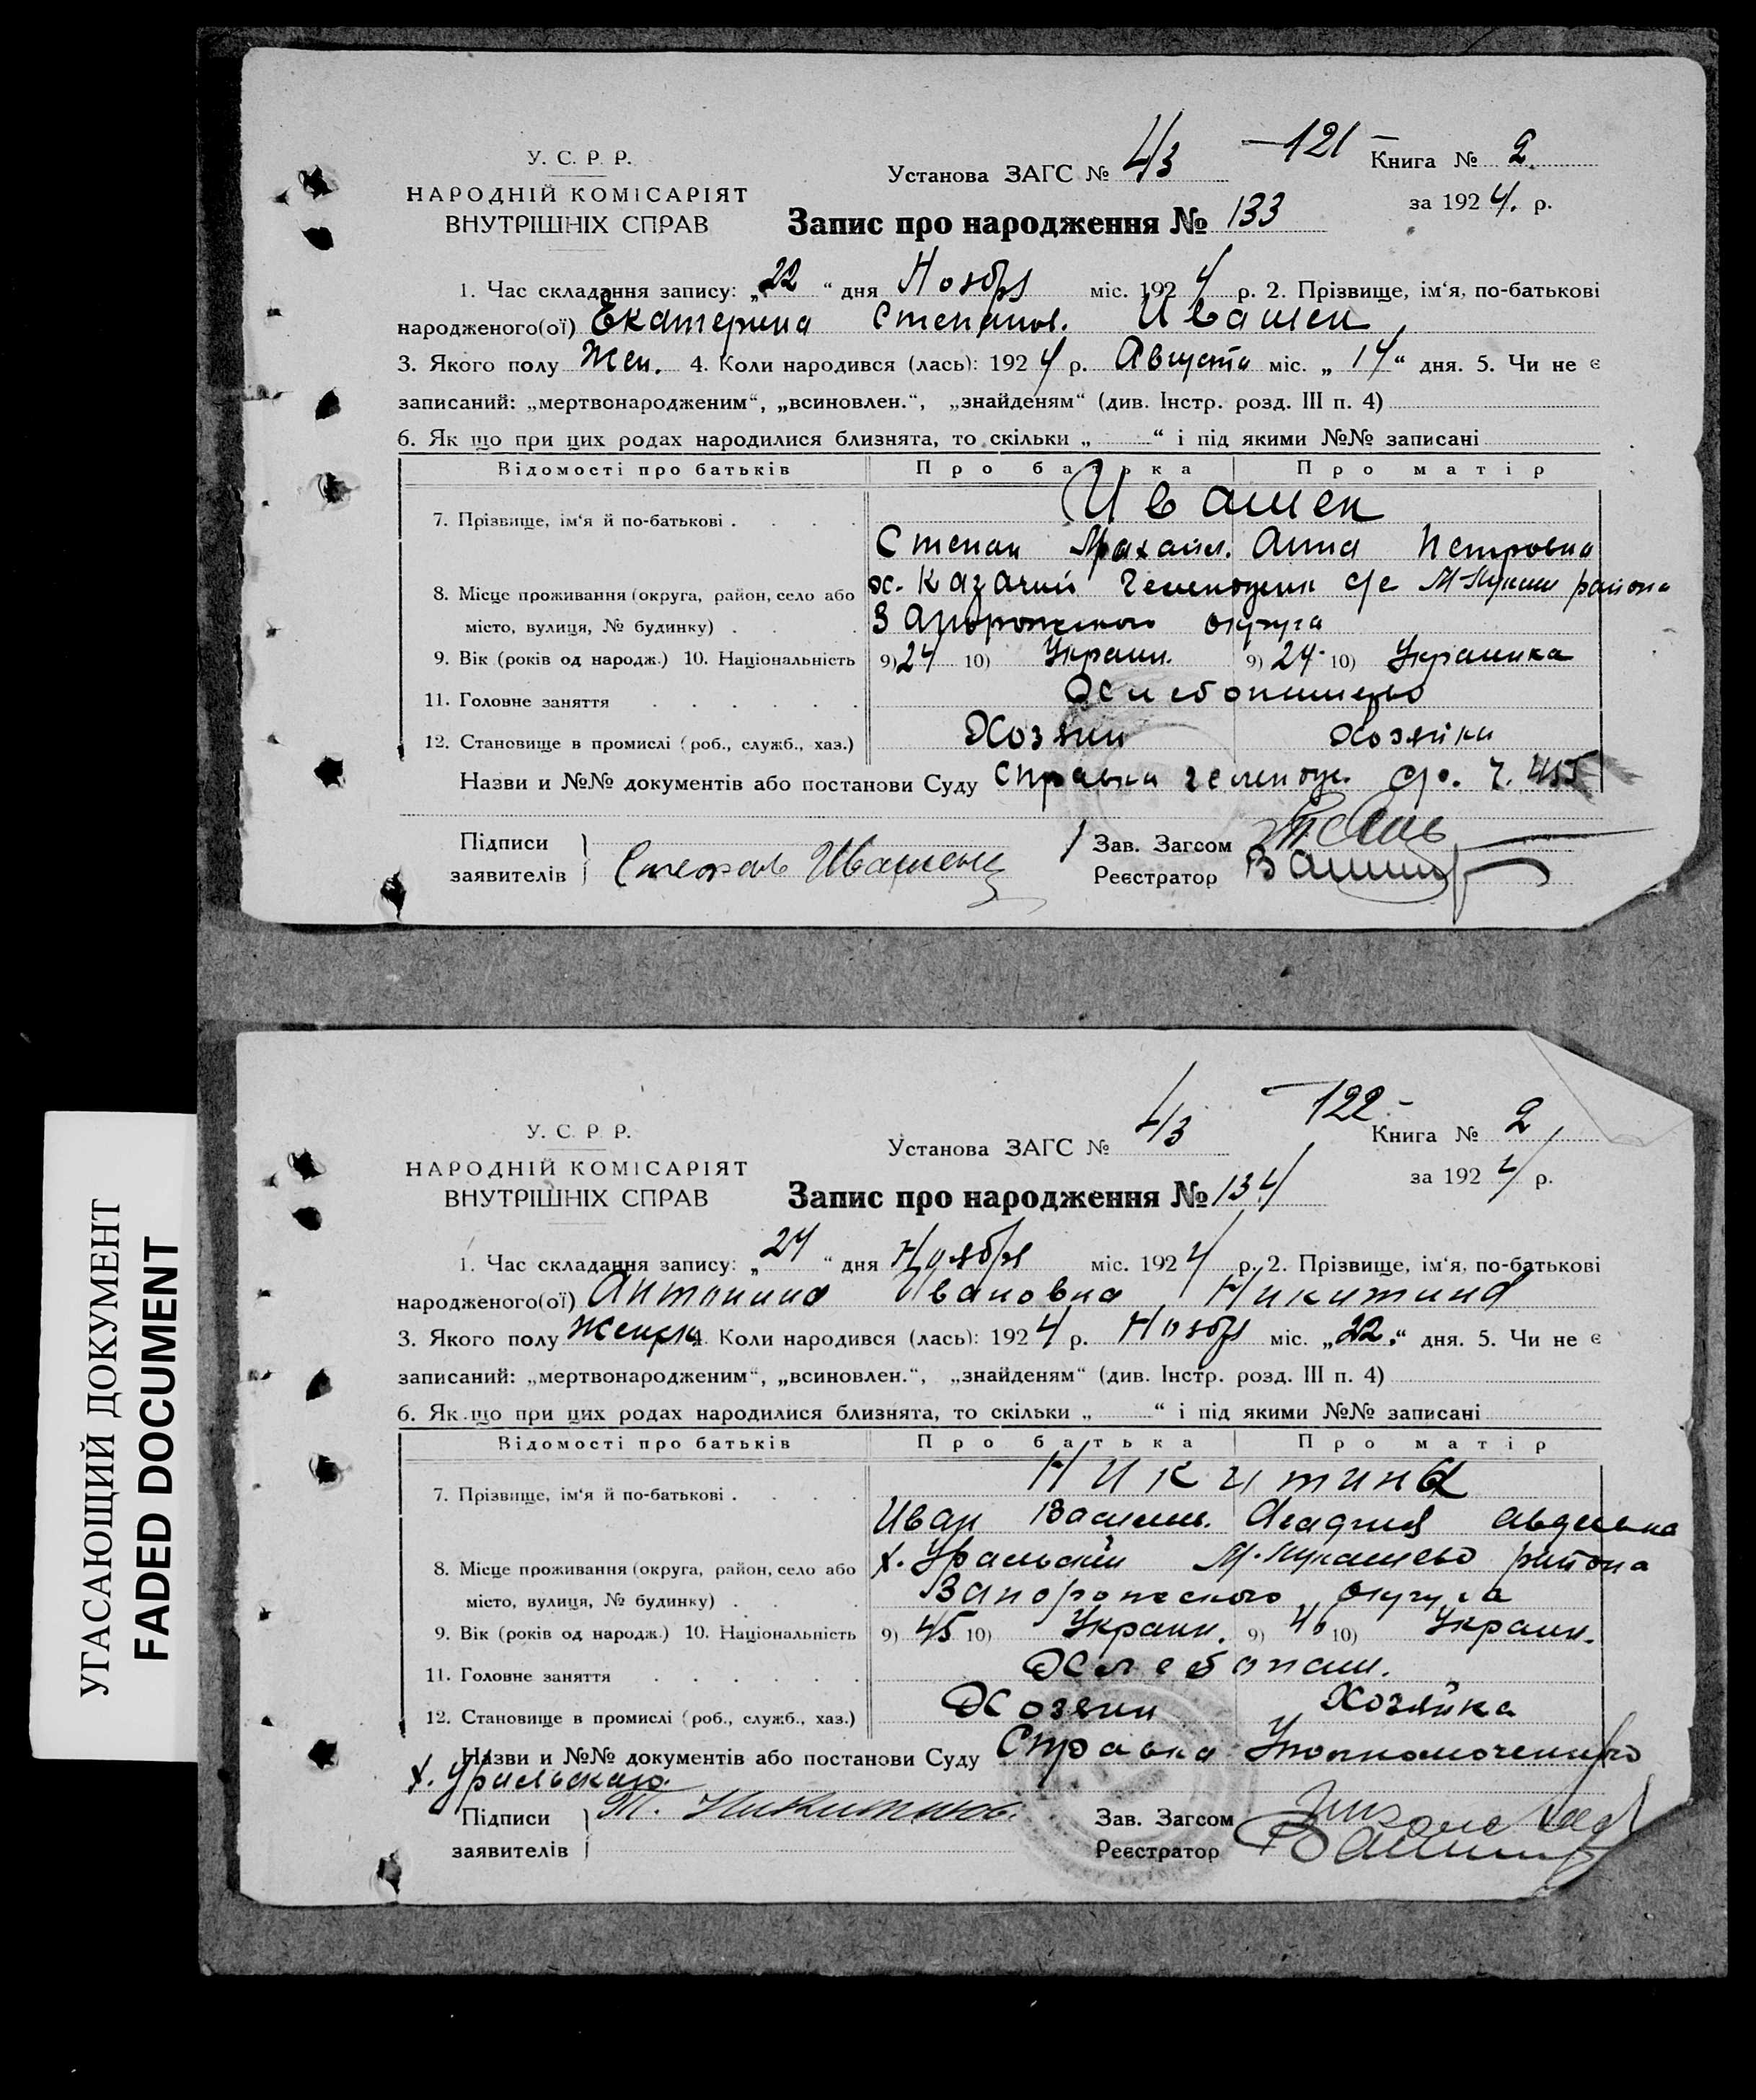 У. С. Р. Р.
НАРОДНІЙ КОМІСАРІЯТ
ВНУТРІШНІХ СПРАВ
Установа ЗАГС № 43 — 121 — Книга № 2.
за 1924. р.
Запис про народження № 133
1. Час складання запису: „22“ дня Ноября міс. 1924 р. 2. Прізвище, ім‘я, по-батькові
народженого(ої) Екатерина Степанов. Ивашен
3. Якого полу Жен. 4. Коли народився (лась): 1924 р. Августа міс. „14“ дня. 5. Чи не є
записаний: „мертвонародженим“, „всиновлен.“, „знайденям“ (див. Інстр. розд. III п. 4)
6. Як що при цих родах народилися близнята, то скільки „ “ і під якими №№ записані
Відомості про батьків Про батька Про матір
7. Прізвище, ім‘я й по-батькові . . . . Ивашен
Степан Михайл. Анна Петровна
8. Місце проживання (округа, район, село або х. Казачий с/с района
місто, вулиця, № будинку) . . Запорожского округа
9. Вік (років од народж.) 10. Національність 9) 24 10) Украин. 9) 24 10) Украинка
11. Головне заняття . . . . . . Хлебопашество
12. Становище в промислі (роб., служб., хаз.) Хозяин Хозяйка
Назви и №№ документів або постанови Суду Справка с/с.
Підписи
заявителів Степан
Зав. Загсом
Реєстратор
У. С. Р. Р.
НАРОДНІЙ КОМІСАРІЯТ
ВНУТРІШНІХ СПРАВ
Установа ЗАГС № 43 — 122 — Книга № 2
за 1924 р.
Запис про народження № 134
1. Час складання запису: „24“ дня Ноября міс. 1924 р. 2. Прізвище, ім‘я, по-батькові
народженого(ої) Антонина Ивановна Никитина
3. Якого полу Женск. 4. Коли народився (лась): 1924 р. Ноябр міс. „22.“ дня. 5. Чи не є
записаний: „мертвонародженим“, „всиновлен.“, „знайденям“ (див. Інстр. розд. III п. 4)
6. Як що при цих родах народилися близнята, то скільки „ “ і під якими №№ записані
Відомості про батьків Про батька Про матір
7. Прізвище, ім‘я й по-батькові . . . . Никитина
Иван Васильев.
8. Місце проживання (округа, район, село або х. Уральский района
місто, вулиця, № будинку) . . Запорожского округа
9. Вік (років од народж.) 10. Національність 9) 45 10) Украин. 9) 40 10) Украин.
11. Головне заняття . . . . . . Хлебопаш.
12. Становище в промислі (роб., служб., хаз.) Хозяин Хозяйка
Назви и №№ документів або постанови Суду Справка Уполномоченного
х. Уральского.
Підписи
заявителів
Зав. Загсом
Реєстратор
УГАСАЮЩИЙ ДОКУМЕНТ
FADED DOCUMENT